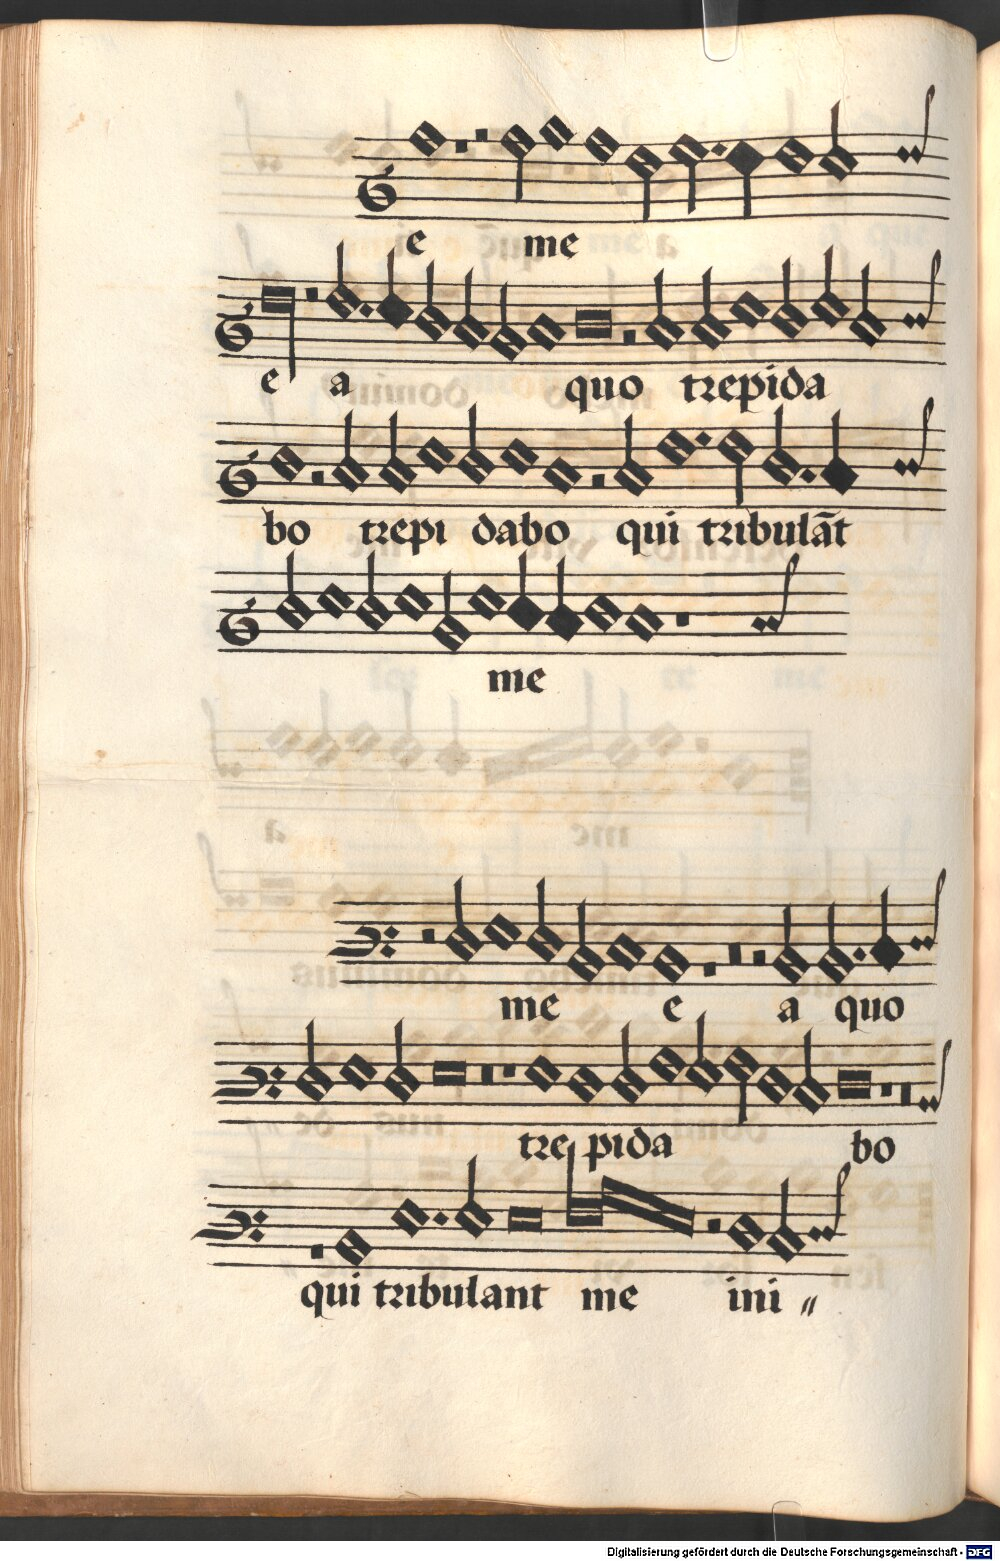 e me
e a quo trepida
bo trepi dabo qui tribulāt
me
me e a quo
tre pida bo
qui tribulant me ini〃
Digitalisierung gefördert durch die Deutsche Forschungsgemeinschaft - DFG